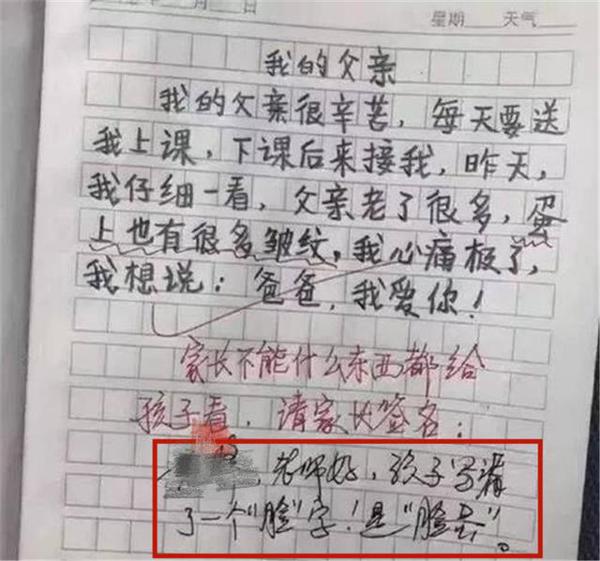 星期 天气
我的父亲
我的父亲很辛苦，每天要送
我上课，下课后来接我，昨天，
我仔细一看，父亲老了很多，蛋
上也有很多皱纹，我心痛极了，
我想说：爸爸，我爱你！
家长不能什么东西都给
孩子看，请家长签名：
，老师好，孩子写漏
了一个"脸"字！是"脸蛋"。